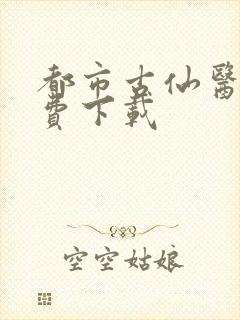 都市古仙醫
費下載
空空姑娘